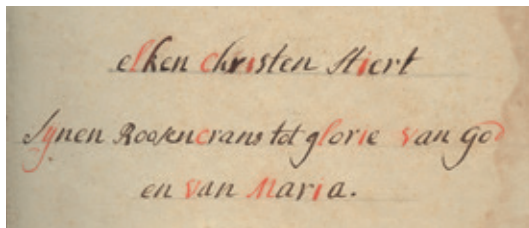 elken christen stiert
synen Roosencrans tot glorie van God
en van Maria.